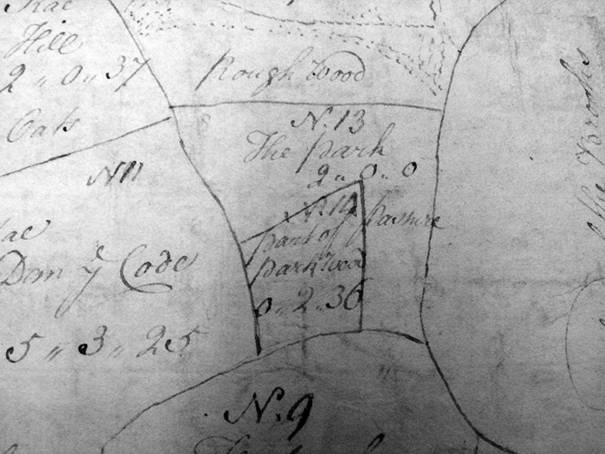 Hill
2 " 0 " 37
Oats
Rough Wood
N. 13
The Park
2 " 0 " 0
N 11
N. 14
part of Pasture
Park Wood
0 " 2 " 36
Dom ye Code
5 " 3 " 25
N. 9